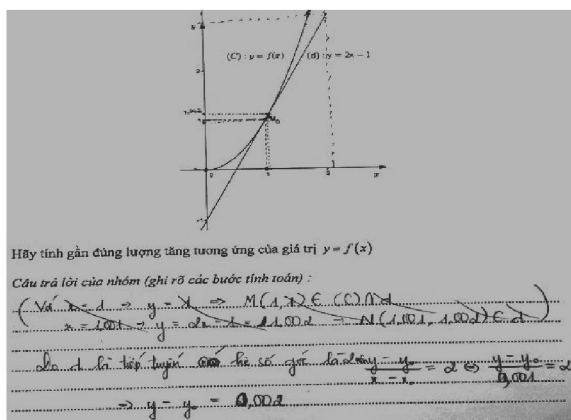 (C) : y = f(x) (d) : y = 2x − 1
M₀
0 1 x
Hãy tính gần đúng lượng tăng tương ứng của giá trị y = f(x)
Câu trả lời của nhóm (ghi rõ các bước tính toán) :
(Với x = 1 → y = 1 ⇒ M(1,1) ∈ (C) ∩ d
x = 1,001 → y = 2x − 1 = 1,002 → N(1,001, 1,002) ∈ d)
Do d là tiếp tuyến hệ số góc là 2 nên (y − y₀)/(x − x₀) = 2 ⇔ (y − y₀)/0,001 = 2
⇒ y − y₀ = 0,002